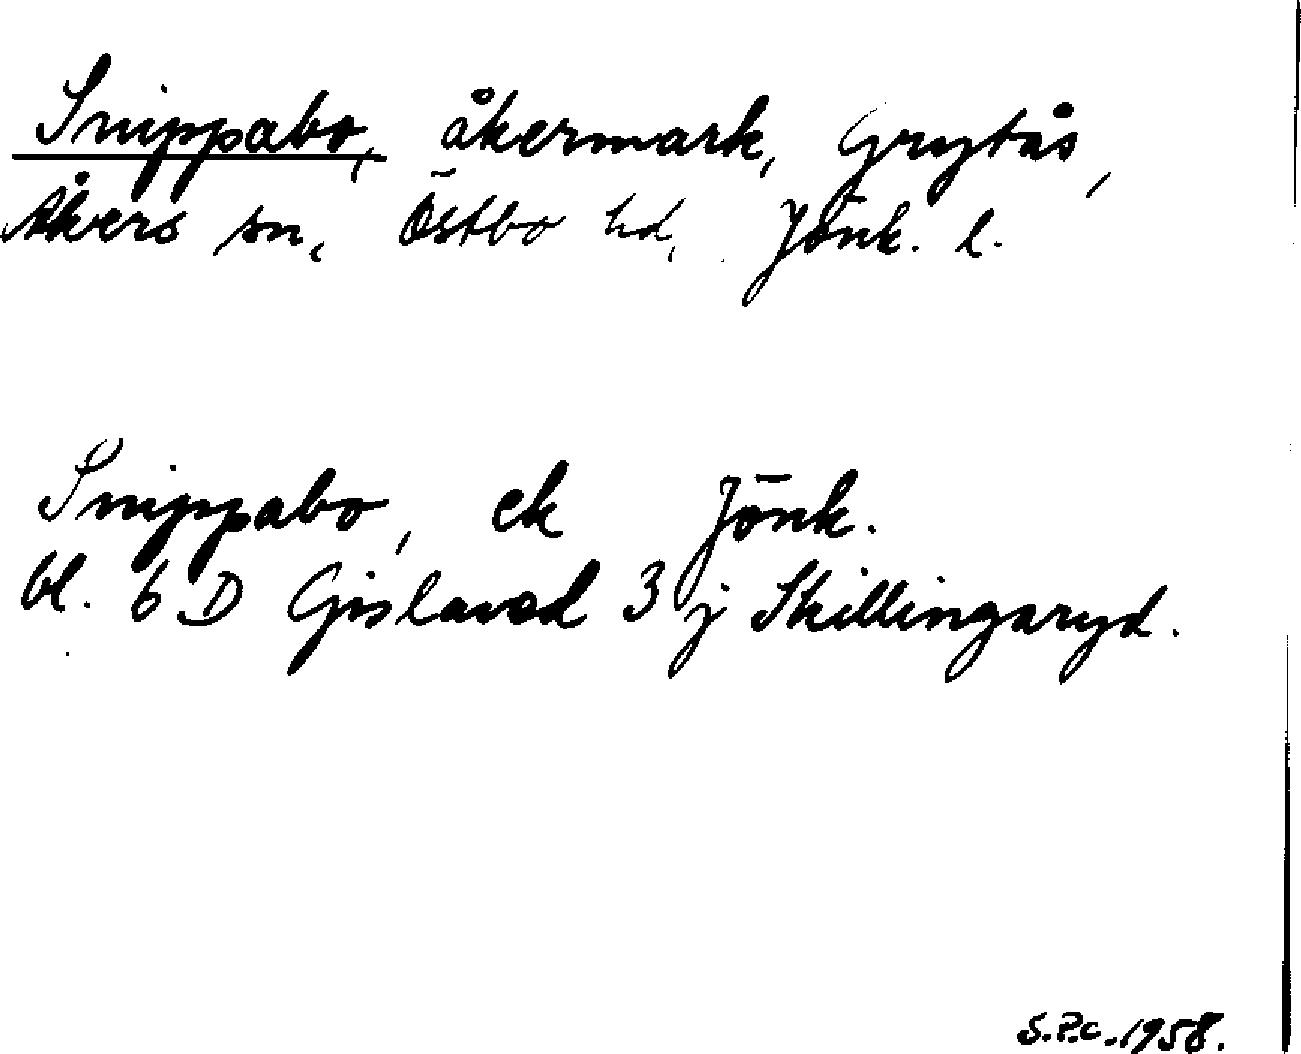 Snippabo, åkermark, Grytås,
Åkers sn, Östbo hd, Jönk. l.
Snippabo, ek Jönk.
bl. 6 D Gislaved 3 j Skillingaryd.
S.P.C. 1958.